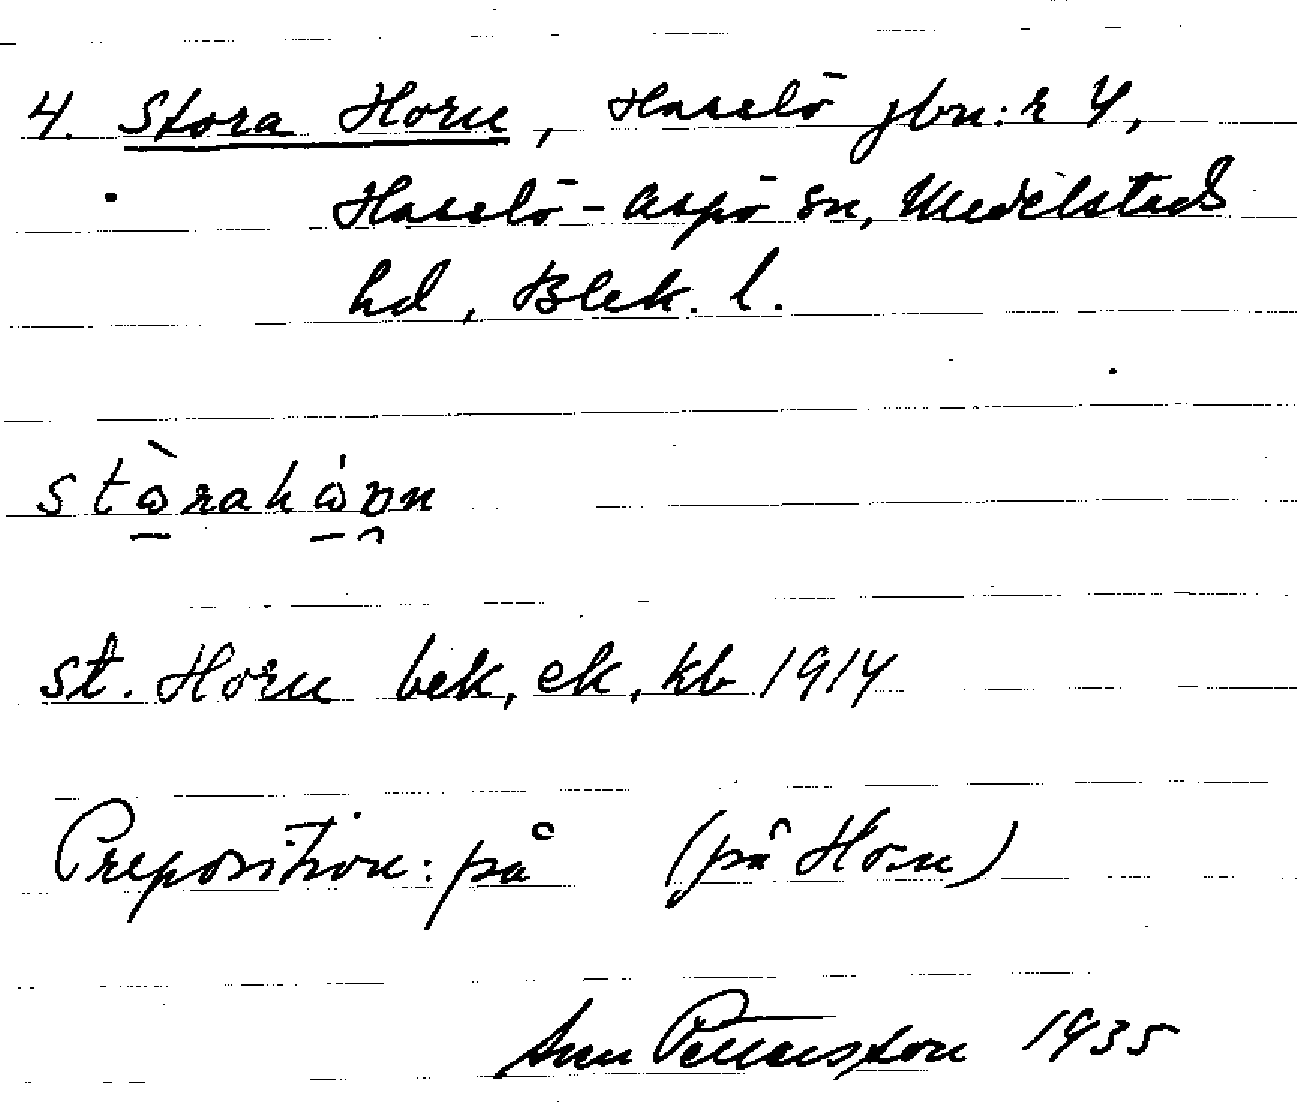 4. Stora Horn, Hasslö jbn:r 4,
Hasslö-Aspö sn, Medelstads
hd, Blek. l.
st. Horn bek, ek, kb 1914
Preposition: på (på Horn)
Pettersson 1935